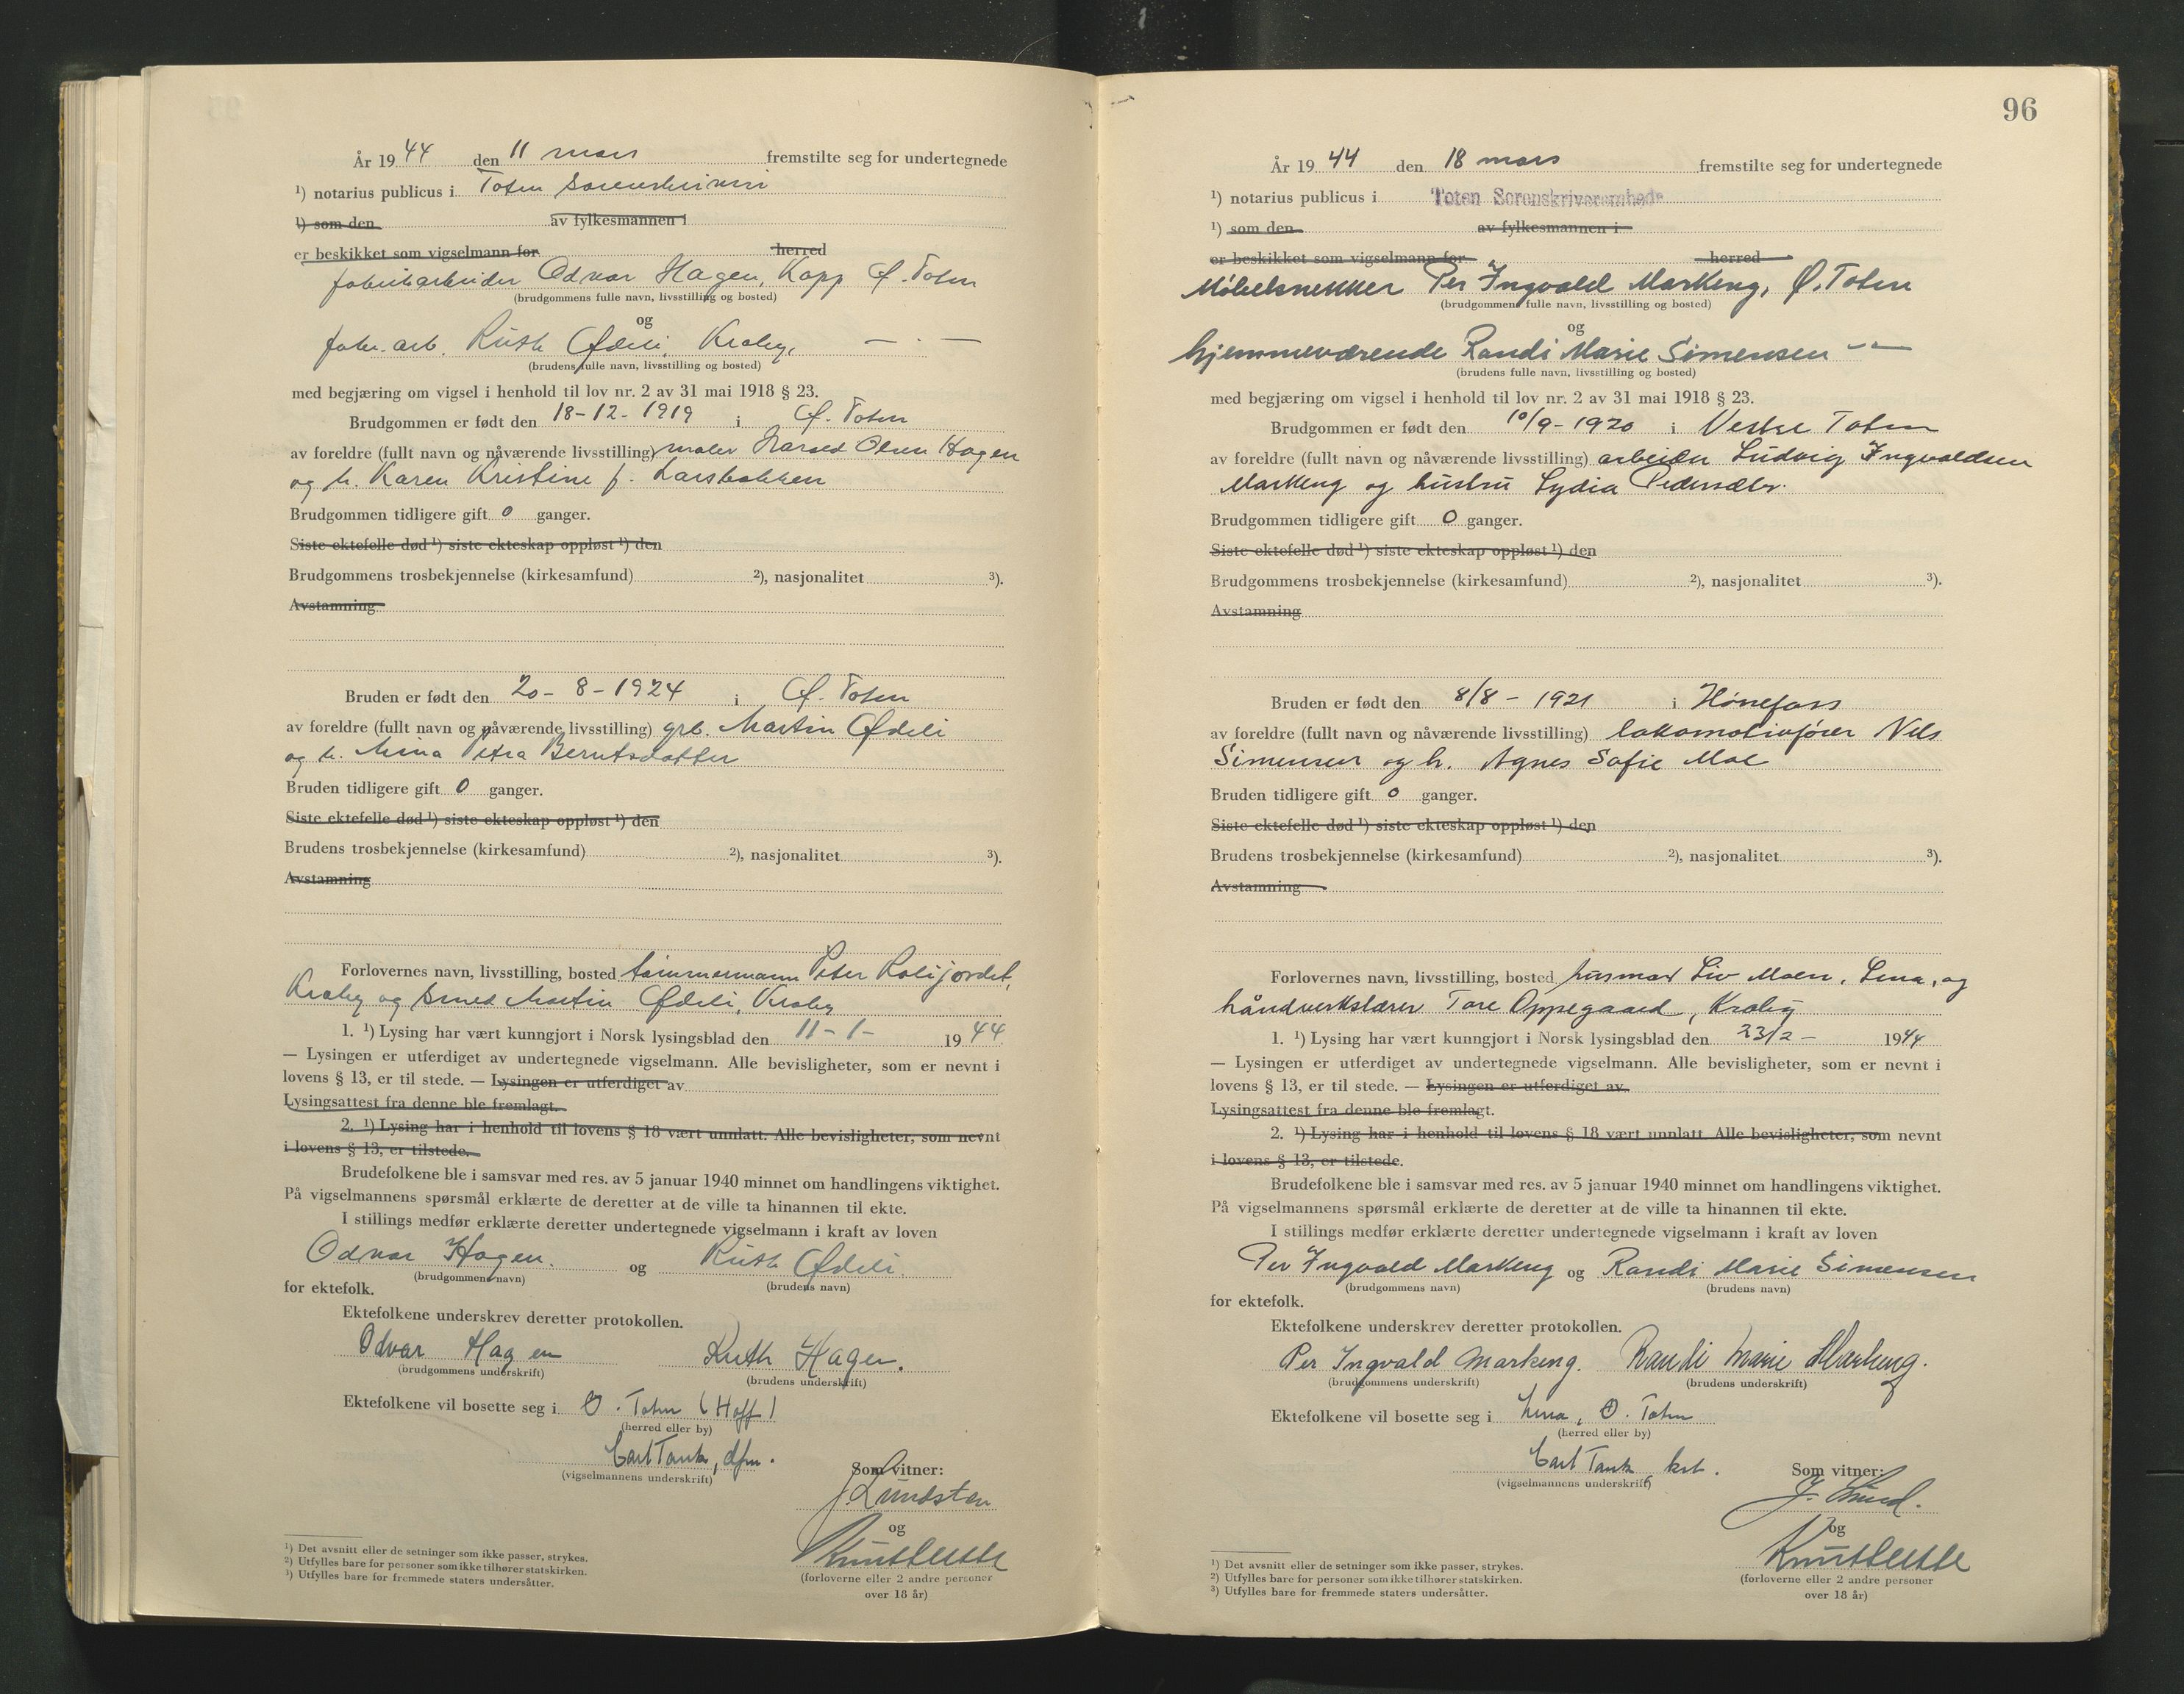 År 19 44 den 11 mars fremstilte seg for undertegnede
¹) notarius publicus i Toten
¹) som den av fylkesmannen i
er beskikket som vigselmann for herred
fabrikarbeider Odvar Hagen, Kapp Ø. Toten
(brudgommens fulle navn, livsstilling og bosted)
og
fabr. arb. Ruth Ødeli, Kraby, — . —
(brudens fulle navn, livsstilling og bosted)
med begjæring om vigsel i henhold til lov nr. 2 av 31 mai 1918 § 23.
Brudgommen er født den 18-12-1919 i Ø. Toten
av foreldre (fullt navn og nåværende livsstilling) maler Harald Olsen Hagen
og h. Karen Kristine f. Larsbakken
Brudgommen tidligere gift 0 ganger.
Siste ektefelle død ¹) siste ekteskap oppløst ¹) den
Brudgommens trosbekjennelse (kirkesamfund) ²), nasjonalitet ³).
Avstamning
Bruden er født den 20-8-1924 i Ø. Toten
av foreldre (fullt navn og nåværende livsstilling) grb. Martin Ødeli
og h. Mina Petra Berntsdatter
Bruden tidligere gift 0 ganger.
Siste ektefelle død ¹) siste ekteskap oppløst ¹) den
Brudens trosbekjennelse (kirkesamfund) ²), nasjonalitet ³).
Avstamning
Forlovernes navn, livsstilling, bosted tømmermann Peter
Kraby og smed Martin Ødeli, Kraby
1. ¹) Lysing har vært kunngjort i Norsk lysingsblad den 11-1- 1944
— Lysingen er utferdiget av undertegnede vigselmann. Alle bevisligheter, som er nevnt i
lovens § 13, er til stede. — Lysingen er utferdiget av
Lysingsattest fra denne ble fremlagt.
2. ¹) Lysing har i henhold til lovens § 18 vært unnlatt. Alle bevisligheter, som nevnt
i lovens § 13, er tilstede.
Brudefolkene ble i samsvar med res. av 5 januar 1940 minnet om handlingens viktighet.
På vigselmannens spørsmål erklærte de deretter at de ville ta hinannen til ekte.
I stillings medfør erklærte deretter undertegnede vigselmann i kraft av loven
Odvar Hagen. og Ruth Ødeli.
(brudgommens navn) (brudens navn)
for ektefolk.
Ektefolkene underskrev deretter protokollen.
Odvar Hagen Ruth Hagen.
(brudgommens underskrift) (brudens underskrift)
Ektefolkene vil bosette seg i Ø. Toten (Hoff)
(herred eller by)
Carl Tank, dfm.
(vigselmannens underskrift)
Som vitner:
J. Lundsten
og
(forloverne eller 2 andre personer
over 18 år)
¹) Det avsnitt eller de setninger som ikke passer, strykes.
²) Utfylles bare for personer som ikke tilhører statskirken.
³) Utfylles bare for fremmede staters undersåtter.
96
År 19 44 den 18 mars fremstilte seg for undertegnede
¹) notarius publicus i Toten Sorenskriverembede
¹) som den av fylkesmannen i
er beskikket som vigselmann for herred
Møbelsnekker Per Ingvald Markeng, Ø. Toten
(brudgommens fulle navn, livsstilling og bosted)
og
hjemmeværende Randi Marie Simensen - -
(brudens fulle navn, livsstilling og bosted)
med begjæring om vigsel i henhold til lov nr. 2 av 31 mai 1918 § 23.
Brudgommen er født den 10/9-1920 i Vestre Toten
av foreldre (fullt navn og nåværende livsstilling) arbeider Ludvig Ingvaldsen
Markeng og hustru Lydia
Brudgommen tidligere gift 0 ganger.
Siste ektefelle død ¹) siste ekteskap oppløst ¹) den
Brudgommens trosbekjennelse (kirkesamfund) ²), nasjonalitet ³).
Avstamning
Bruden er født den 8/8 - 1921 i Hønefoss
av foreldre (fullt navn og nåværende livsstilling) lokomotivfører Nils
Simensen og h. Agnes Sofie Moe
Bruden tidligere gift 0 ganger.
Siste ektefelle død ¹) siste ekteskap oppløst ¹) den
Brudens trosbekjennelse (kirkesamfund) ²), nasjonalitet ³).
Avstamning
Forlovernes navn, livsstilling, bosted husmor Liv Moen, Lena, og
håndverkslærer Tore Oppegaard, Kraby
1. ¹) Lysing har vært kunngjort i Norsk lysingsblad den 23/2 - 1944
— Lysingen er utferdiget av undertegnede vigselmann. Alle bevisligheter, som er nevnt i
lovens § 13, er til stede. — Lysingen er utferdiget av
Lysingsattest fra denne ble fremlagt.
2. ¹) Lysing har i henhold til lovens § 18 vært unnlatt Alle bevisligheter, som nevnt
i lovens § 13, er tilstede.
Brudefolkene ble i samsvar med res. av 5 januar 1940 minnet om handlingens viktighet.
På vigselmannens spørsmål erklærte de deretter at de ville ta hinannen til ekte.
I stillings medfør erklærte deretter undertegnede vigselmann i kraft av loven
Per Ingvald Markeng og Randi Marie Simensen
(brudgommens navn) (brudens navn)
for ektefolk.
Ektefolkene underskrev deretter protokollen.
Per Ingvald Markeng. Randi Marie Markeng.
(brudgommens underskrift) (brudens underskrift)
Ektefolkene vil bosette seg i Lena, Ø. Toten
(herred eller by)
Carl Tank, kst.
(vigselmannens underskrift)
Som vitner:
og
(forloverne eller 2 andre personer
over 18 år)
¹) Det avsnitt eller de setninger som ikke passer, strykes.
²) Utfylles bare for personer som ikke tilhører statskirken.
³) Utfylles bare for fremmede staters undersåtter.